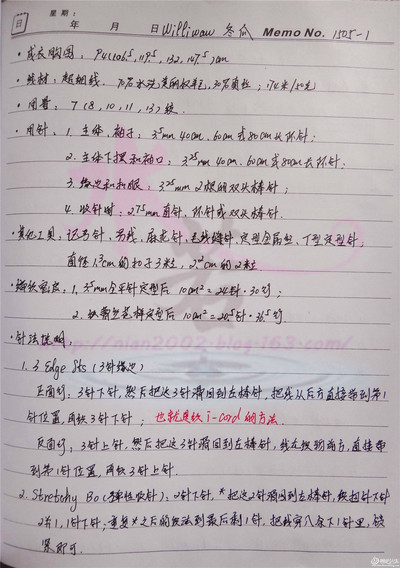 日 星期：
年 月 日 Williwaw 冬瓜 Memo No. 1505-1
·成衣胸围：94(106.5, 119.5, 132, 147.5)cm
·线材：超细线．70%水洗美丽奴羊毛，30%真丝；174米/50克
·用量：7(8, 10, 11, 13)绞．
·用针：1. 主体、袖子：3.5mm 40cm、60cm或80cm长环针；
2. 主体下摆和袖口：3.25mm 40cm、60cm或80cm长环针；
3. 缘边和扣眼：3.25mm 2根的双头棒针；
4. 收针时：2.75mm直针、环针或双头棒针．
·其他工具：记号针、另线、麻花针、毛线缝针、定型金属丝、T型定型针；
直径1.3cm的扣子3粒，2.2cm的2粒
·编织密度：1. 3.5mm全平针定型后 10cm²=24针·30行；
2. 织菊兰花样定型后 10cm²=20.5针·36.5行．
·针法说明：
http://nian2002.blog.163.com/
1. 3 Edge Sts (3针缘边)
正面行：3针下针，然后把这3针滑回到左棒针，把线从后方直接带到第1
针位置，再织3针下针；也就是织i-cord的方法．
反面行：3针上针，然后把这3针滑回到左棒针，线在织物前方，直接带
到第1针位置，再织3针上针．
2. Stretchy Bo(弹性收针)：2针下针，*把这2针滑回到左棒针，织扭针下针
2并1，1针下针；重复*之后的织法到最后剩1针，把线穿入余下1针里，拉
紧即可．